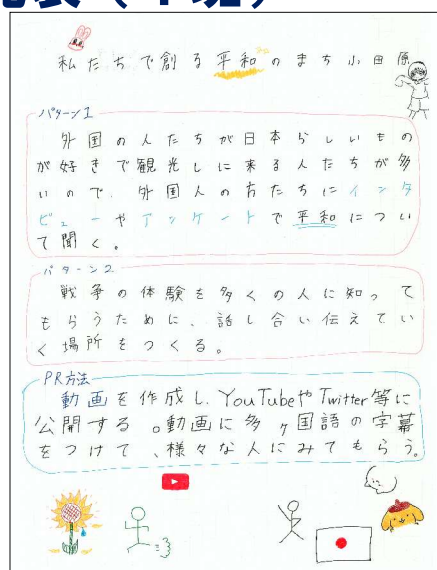 私たちで創る平和のまち小田原
パターン1
外国の人たちが日本らしいもの
が好きで観光しに来る人たちが多
いので、外国人の方たちにインタ
ビューやアンケートで平和につい
て聞く。
パターン2
戦争の体験を多くの人に知って
もらうために、話し合い伝えてい
く場所をつくる。
PR方法
動画を作成し、YouTubeやTwitter等に
公開する。動画に多ヶ国語の字幕
をつけて、様々な人にみてもらう。